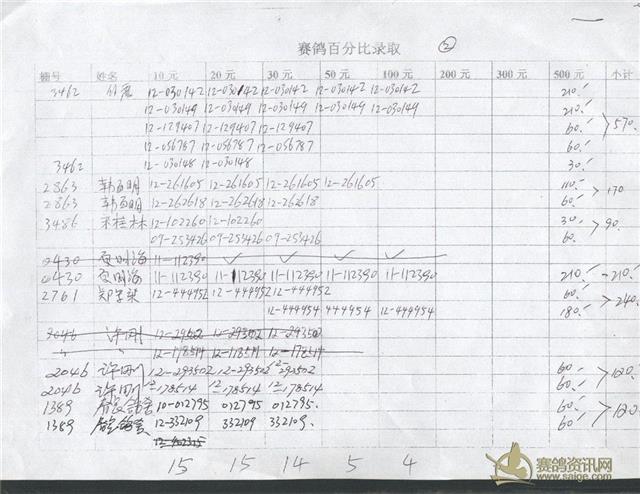 赛鸽百分比录取 ②
棚号 姓名 10元 20元 30元 50元 100元 200元 300元 500元 小计
3462 12-030142 12-030142 12-030142 12-030142 12-030142 210.-
12-030149 12-030149 12-030149 12-030149 12-030149 210.-
12-129407 12-129407 12-129407 60.- 570.-
12-056787 12-056787 12-056787 60.-
3462 12-030148 12-030148 30.-
2863 韩百明 12-261605 12-261605 12-261605 12-261605 110.- 170
2863 韩百明 12-262618 12-262618 12-262618 60.-
3486 宋桂林 12-102260 12-102260 30.- 90.-
09-253426 09-253426 09-253426 60.-
0430 11-112390 ✓ ✓ ✓ ✓
0430 11-112390 11-112390 11-112390 11-112390 11-112390 210.- 210.-
2761 12-444952 12-444952 12-444952 60.- 240.-
12-444952 444952 12-444952 180.-
2046 许刚 12-29502 12-293502 12-293502
〃 〃 12-178514 12-178514 12-178514
2046 许刚 12-293502 12-293502 12-293502 60.- 120.-
2046 许刚 12-178514 12-178514 12-178514 60.-
1389 10-012795 012795 012795. 60.- 120.-
1389 12-332109 332109 332109. 60.-
15 15 14 5 4
赛鸽资讯网
www.saige.com